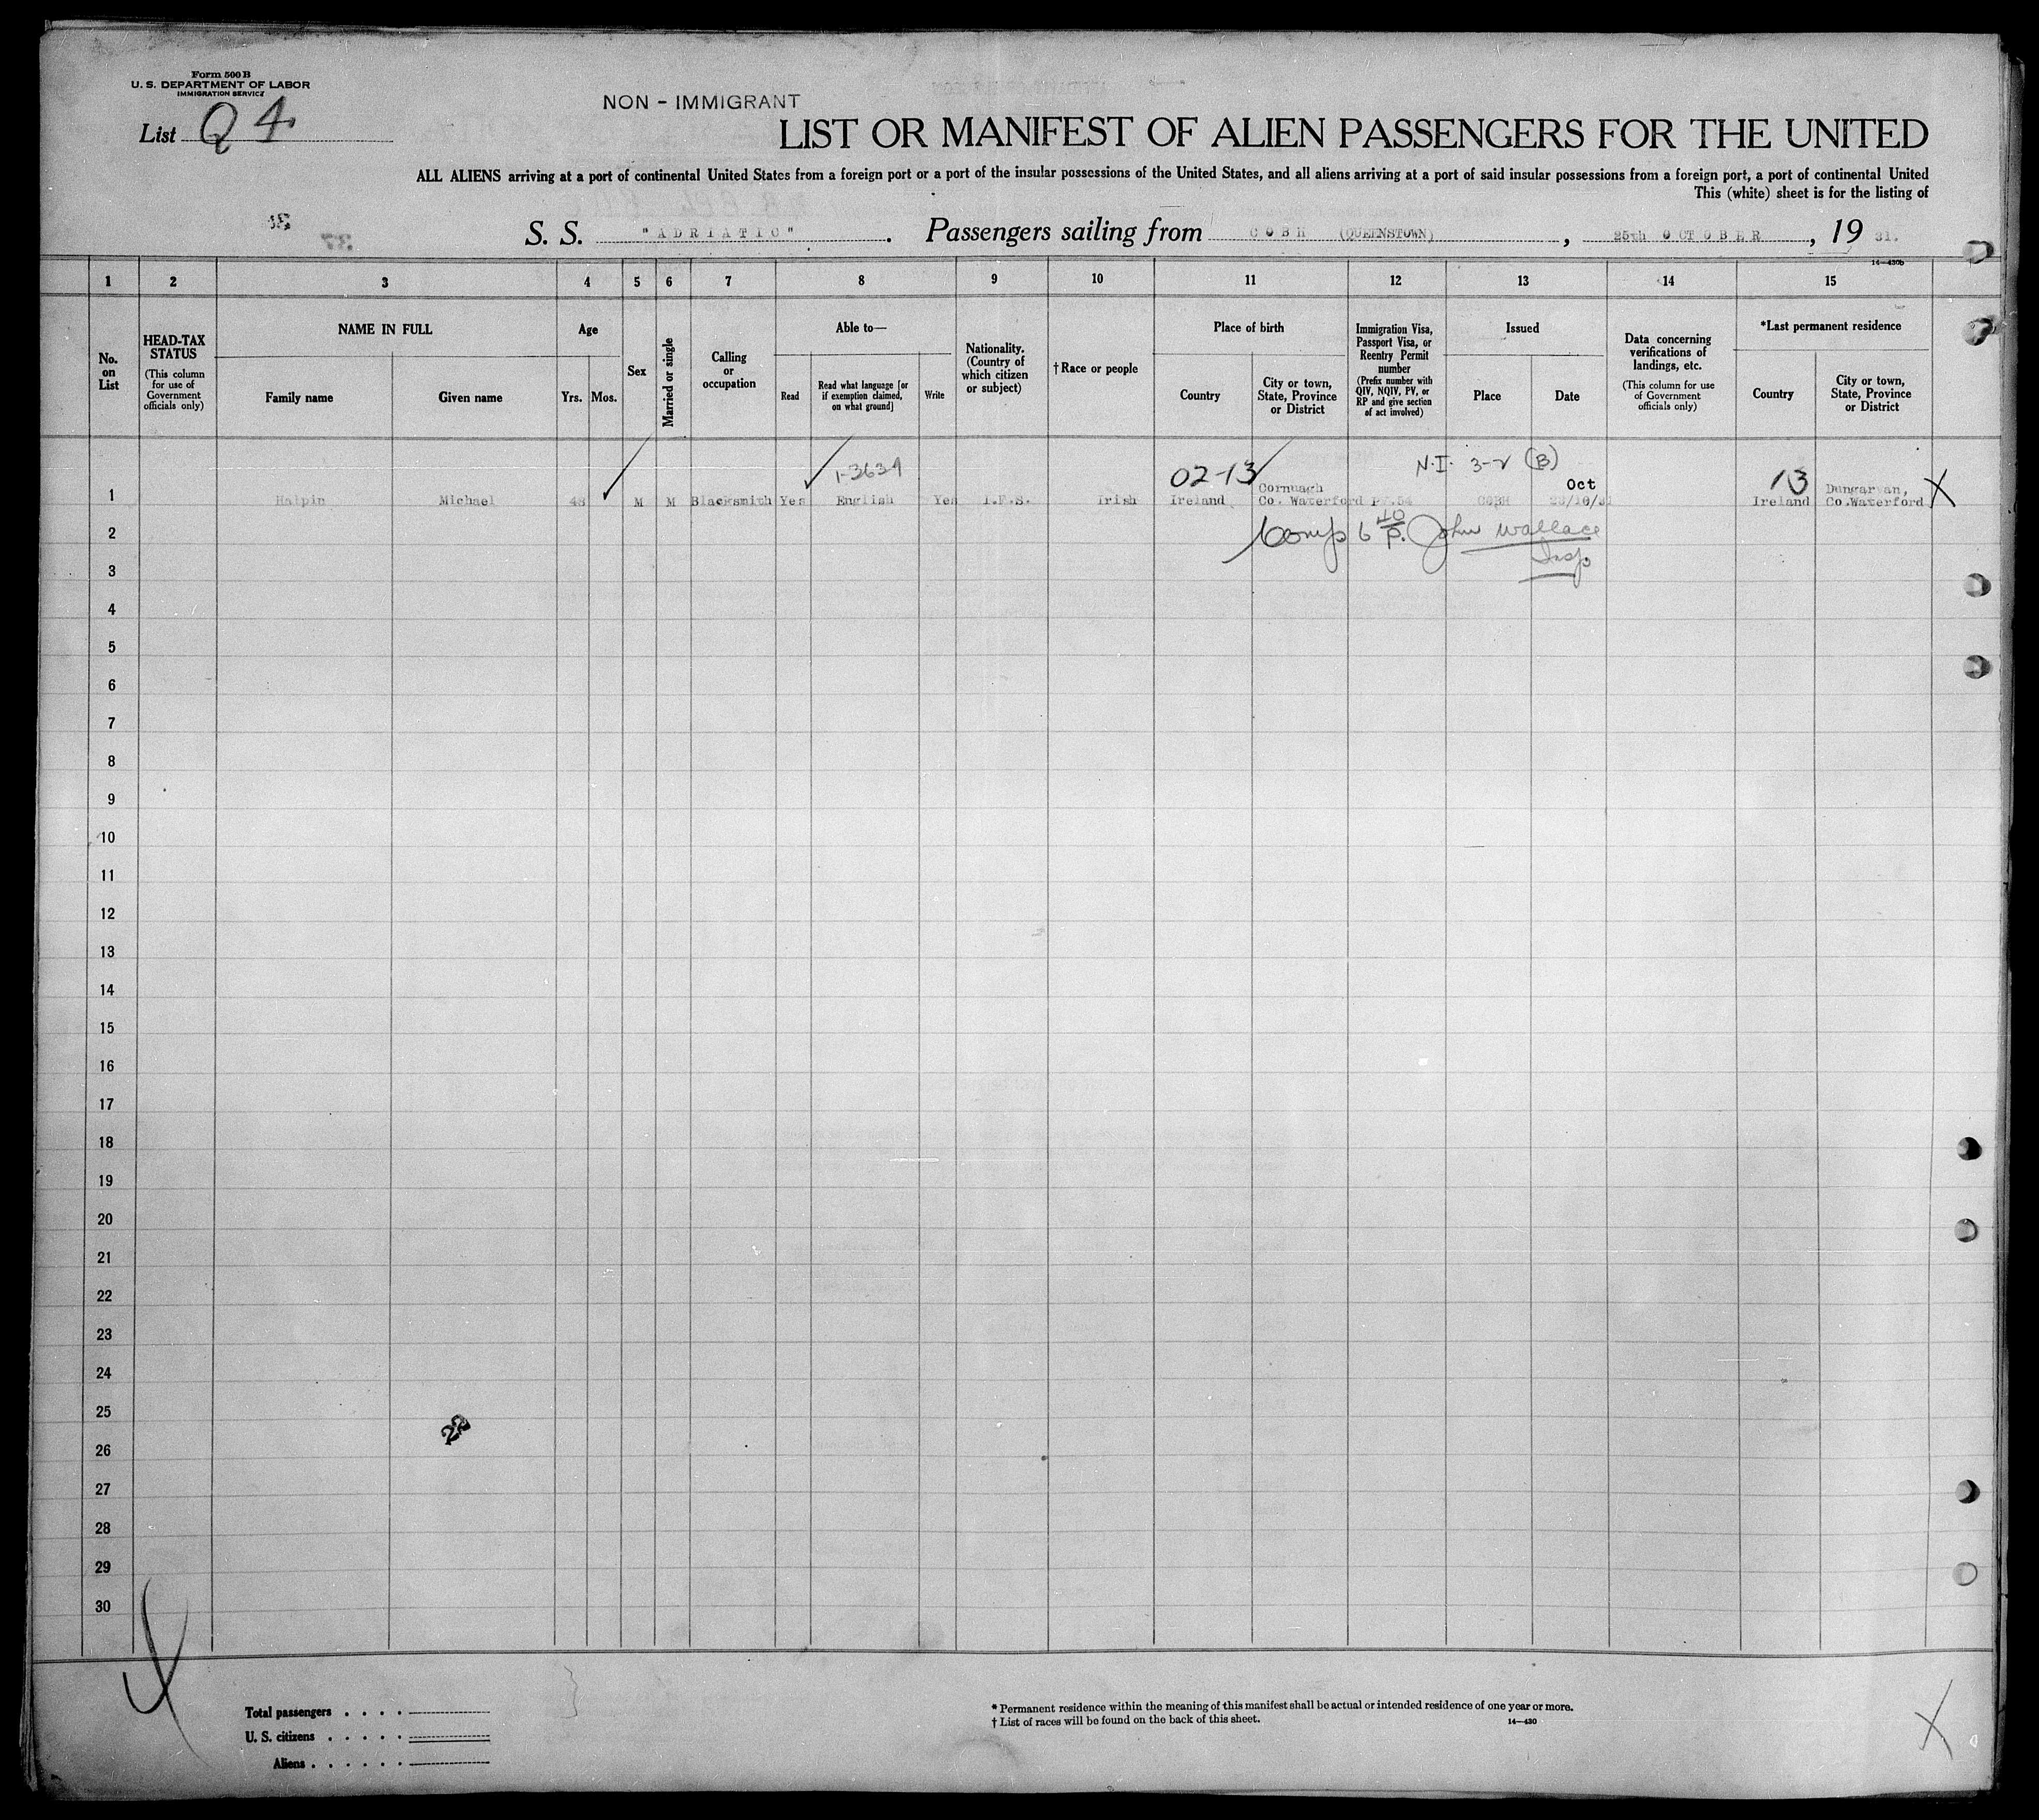 Form 500 B
U. S. DEPARTMENT OF LABOR
IMMIGRATION SERVICE
List Q 4
NON - IMMIGRANT
LIST OR MANIFEST OF ALIEN PASSENGERS FOR THE UNITED
ALL ALIENS arriving at a port of continental United States from a foreign port or a port of the insular possessions of the United States, and all aliens arriving at a port of said insular possessions from a foreign port, a port of continental United
This (white) sheet is for the listing of
S. S. "ADRIATIC". Passengers sailing from COBH (QUEENSTOWN), 25th OCTOBER, 19 31.
14—430b
1 2 3 4 5 6 7 8 9 10 11 12 13 14 15
No. on List
HEAD-TAX STATUS
(This column for use of Government officials only)
NAME IN FULL
Family name
Given name
Age
Yrs.
Mos.
Sex
Married or single
Calling or occupation
Able to—
Read
Read what language [or if exemption claimed, on what ground]
Write
Nationality. (Country of which citizen or subject)
† Race or people
Place of birth
Country
City or town, State, Province or District
Immigration Visa, Passport Visa, or Reentry Permit number
(Prefix number with QIV, NQIV, PV, or RP and give section of act involved)
Issued
Place
Date
Data concerning verifications of landings, etc.
(This column for use of Government officials only)
*Last permanent residence
Country
City or town, State, Province or District
1-3634 02-13 N.I. 3-2 (B) 13
Oct
Cornuagh Dungarvan,
1 Halpin Michael 48 M M Blacksmith Yes English Yes I.F.S. Irish Ireland Co. Waterford COBH Ireland Co.Waterford X
2 Comp 6 40 P. John Wallace
Insp
3
4
5
6
7
8
9
10
11
12
13
14
15
16
17
18
19
20
21
22
23
24
25
26
27
28
29
30
Total passengers . . . .
U. S. citizens . . . . .
Aliens . . . . . .
* Permanent residence within the meaning of this manifest shall be actual or intended residence of one year or more.
† List of races will be found on the back of this sheet.
14—430
X